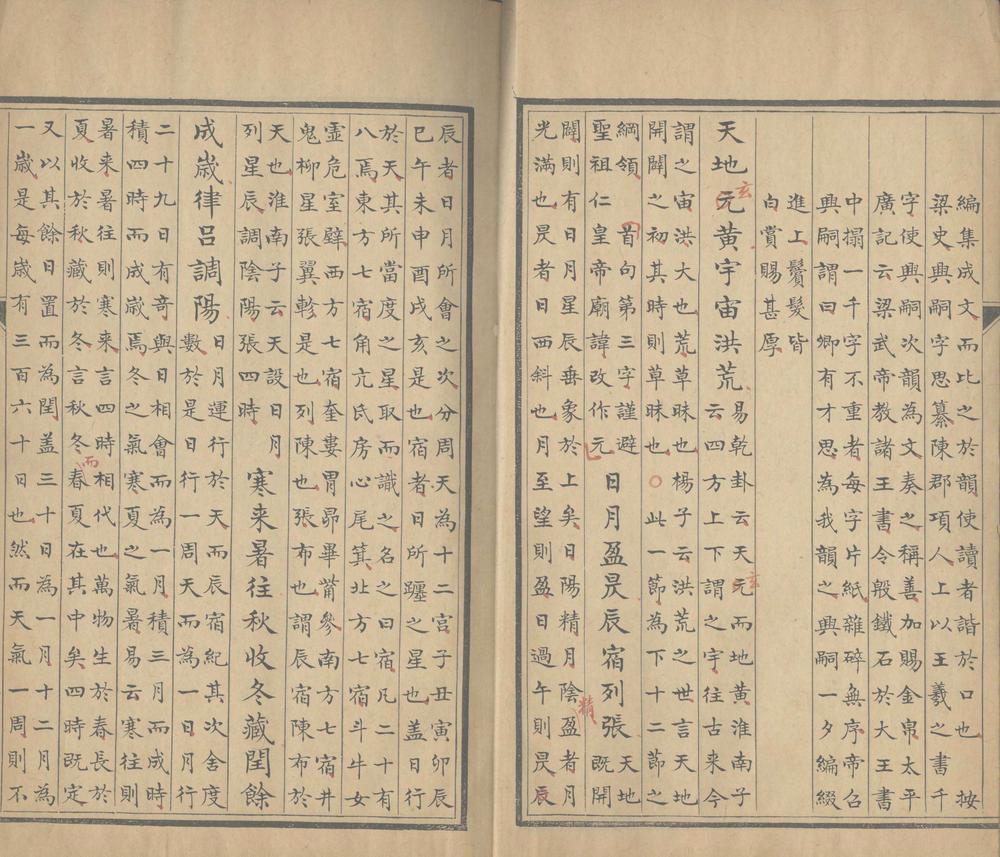 編集成文而比之於韻使讀者諧於口也 按
梁史興嗣字思纂陳郡項人上以王羲之書千
字使興嗣次韻為文奏之稱善加賜金帛太平
廣記云梁武帝教諸王書令殷鐵石於大王書
中搨一千字不重者每字片紙雜碎無序帝召
興嗣謂曰卿有才思為我韻之興嗣一夕編綴
進上鬢髮皆
白賞賜甚厚
天地元黃宇宙洪荒
玄
易乾卦云天元而地黃淮南子
玄
云四方上下謂之宇往古来今
謂之宙洪大也荒草昧也楊子云洪荒之世言天地
開闢之初其時則草昧也○此一節為下十二節之
綱領 首句第三字謹避
聖祖仁皇帝廟諱改作元
日月盈昃辰宿列張
天地
既開
闢則有日月星辰垂象於上矣日陽精月陰盈者月
精
光滿也昃者日西斜也月至望則盈日過午則昃辰
辰者日月所會之次分周天為十二宮子丑寅卯辰
巳午未申酉戌亥是也宿者日所躔之星也盖日行
於天其所當度之星取而識之名之曰宿凡二十有
八焉東方七宿角亢氐房心尾箕北方七宿斗牛女
虛危室壁西方七宿奎婁胃昴畢觜參南方七宿井
鬼柳星張翼軫是也列陳也張布也謂辰宿陳布於
天也淮南子云天設日月
列星辰調陰陽張四時
寒来暑往秋收冬藏閏餘
成歲律吕調陽
日月運行於天而辰宿紀其次舍度
數於是日行一周天而為一日月行
二十九日有奇與日相會而為一月積三月而成時
積四時而成歲焉冬之氣寒夏之氣暑易云寒往則
暑来暑往則寒来言四時相代也萬物生於春長於
夏收於秋藏於冬言秋冬春夏在其中矣四時既定
而
又以其餘日置而為閏盖三十日為一月十二月為
一歲是每歲有三百六十日也然而天氣一周則不